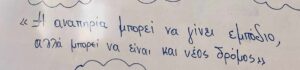 «Η αναπηρία μπορεί να γίνει εμπόδιο,
αλλά μπορεί να είναι και νέος δρόμος»